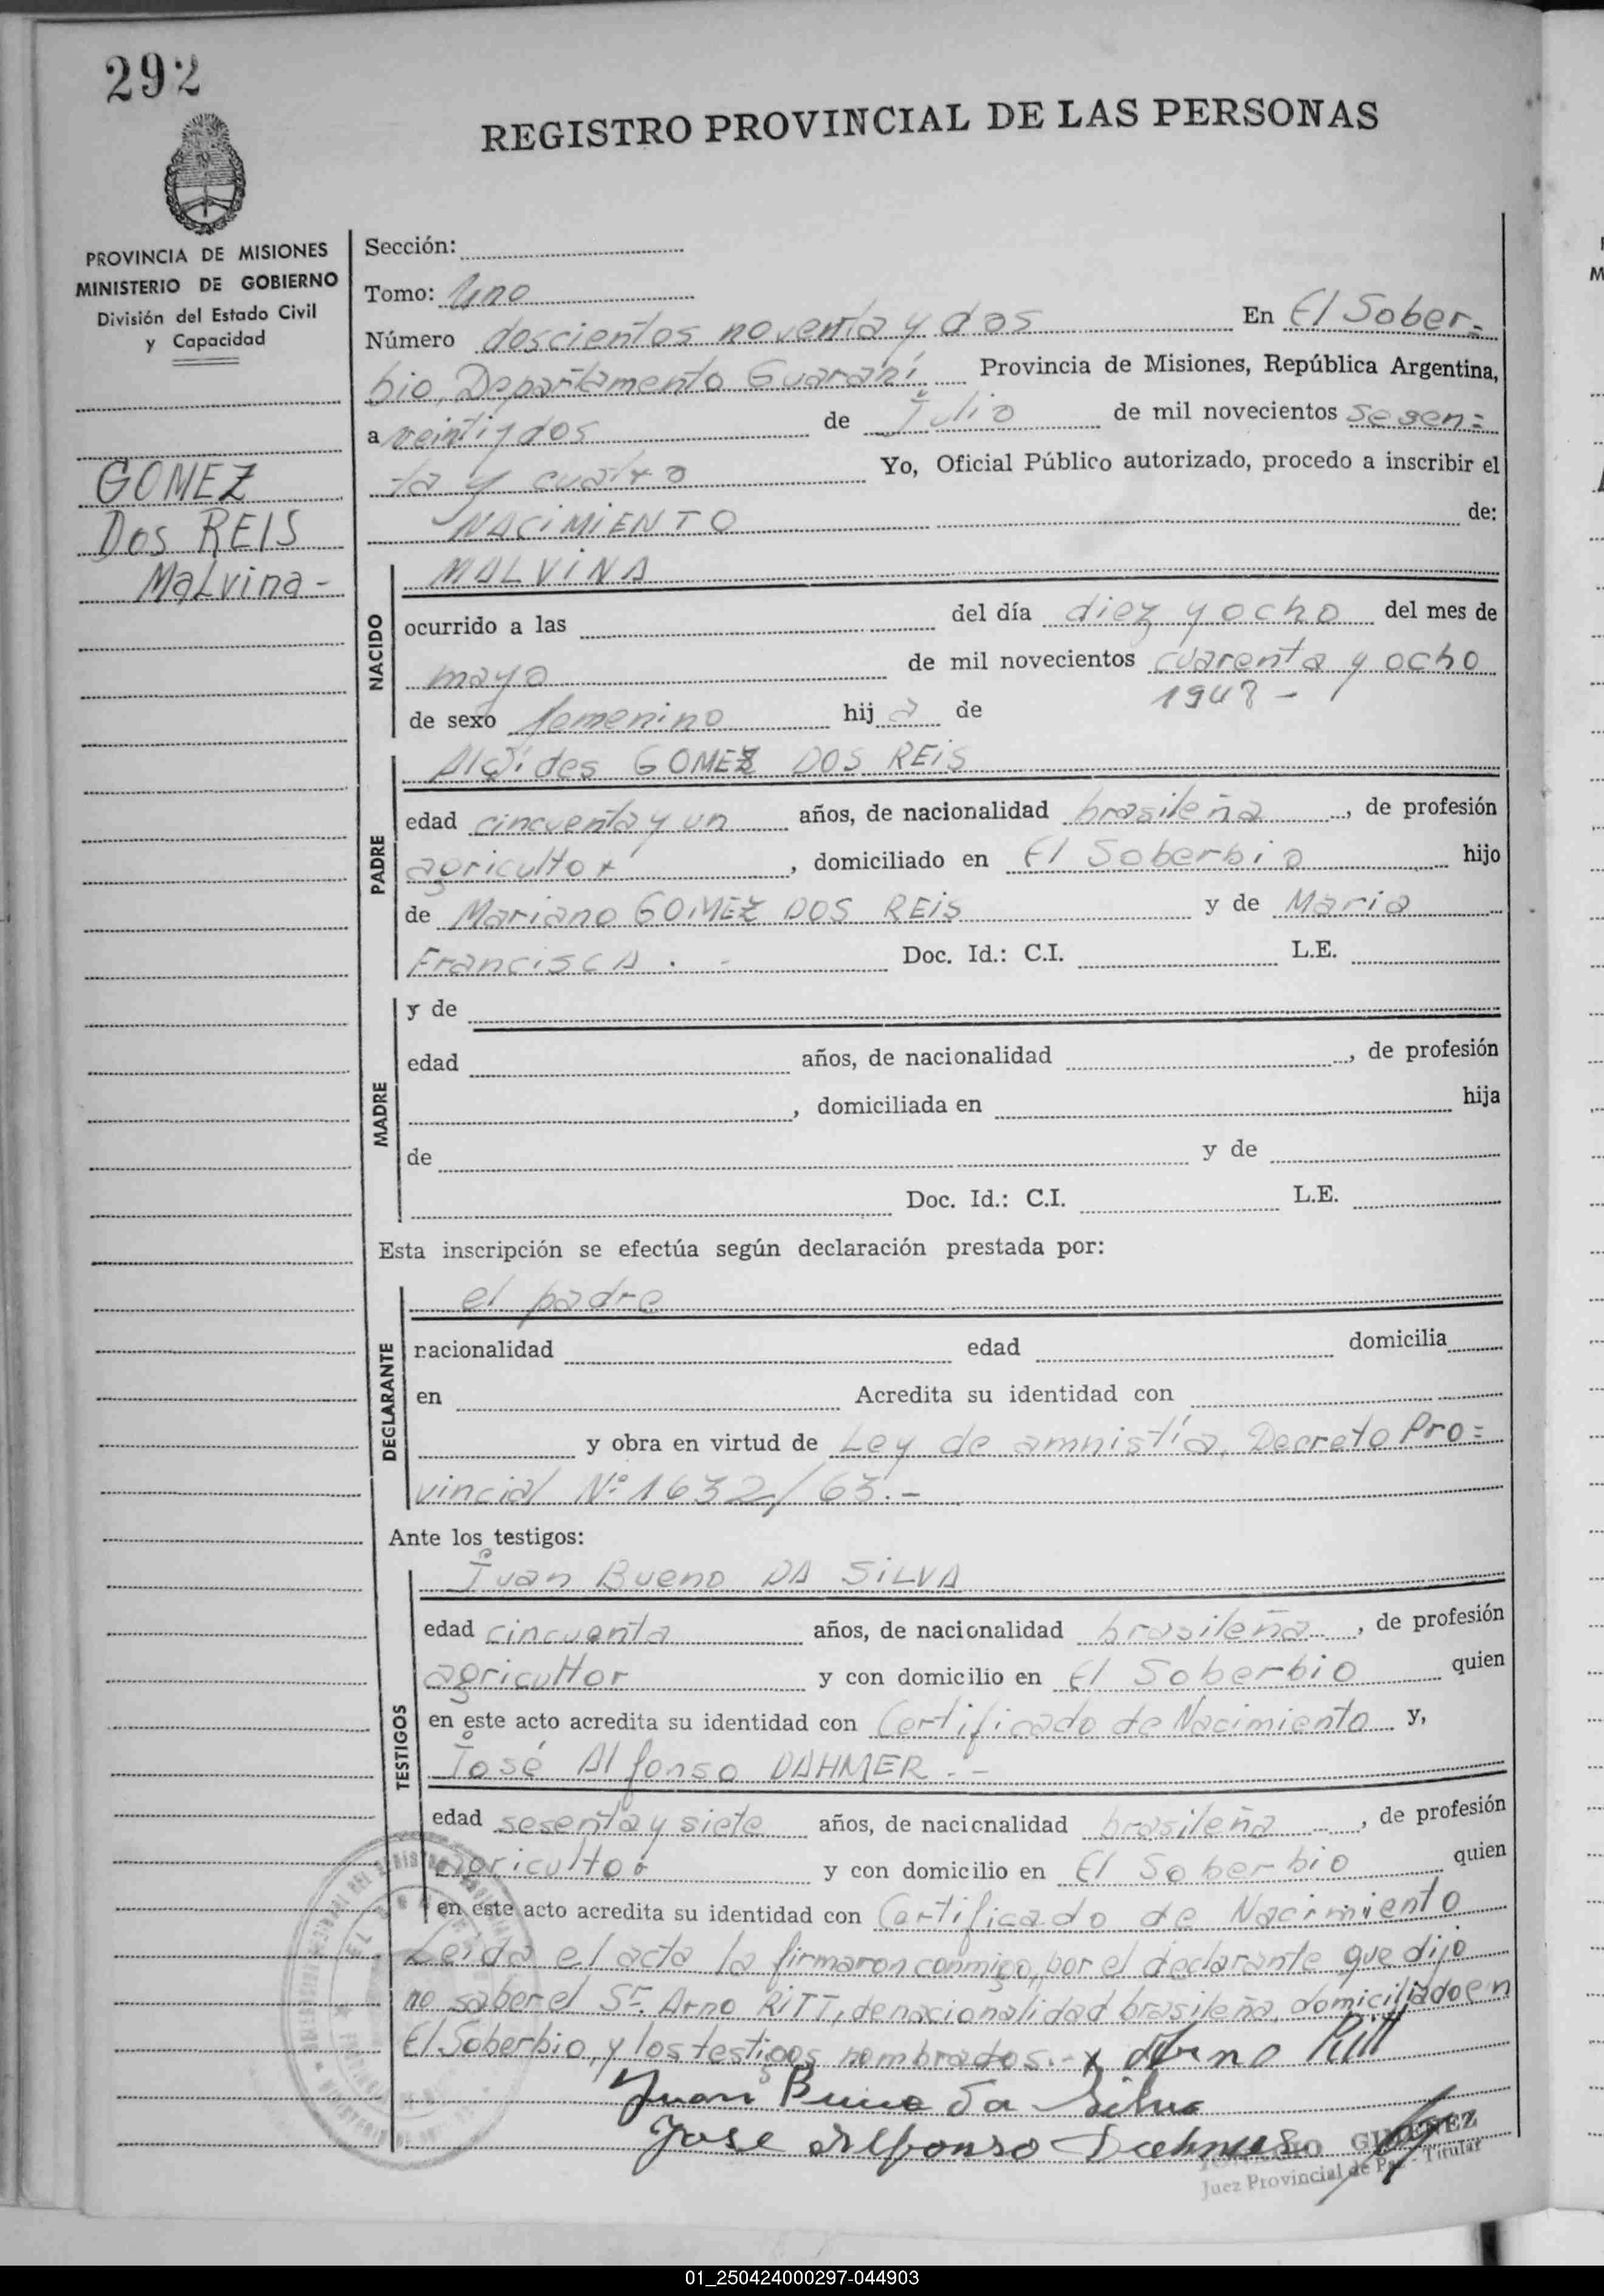 292
REGISTRO PROVINCIAL DE LAS PERSONAS
PROVINCIA DE MISIONES
MINISTERIO DE GOBIERNO
División del Estado Civil
y Capacidad
GOMEZ
Dos REIS
Malvina-
Sección:
Tomo: Uno
Número doscientos noventa y dos En El Sober=
bio, Departamento Guaraní Provincia de Misiones, República Argentina,
a veintiydos de Julio de mil novecientos sesen=
ta y cuatro Yo, Oficial Público autorizado, procedo a inscribir el
NACIMIENTO de:
NACIDO
MALVINA
ocurrido a las del día diez y ocho del mes de
mayo de mil novecientos cuarenta y ocho
1948 -
de sexo femenino hij a de
PADRE
Alcides GOMEZ DOS REIS
edad cincuenta y un años, de nacionalidad brasileña, de profesión
agricultor, domiciliado en El Soberbio hijo
de Mariano GOMEZ DOS REIS y de Maria
Francisca . - Doc. Id.: C.I. L.E.
MADRE
y de
edad años, de nacionalidad , de profesión
, domiciliada en hija
de y de
Doc. Id.: C.I. L.E.
Esta inscripción se efectúa según declaración prestada por:
DECLARANTE
el padre
nacionalidad edad domicilia
en Acredita su identidad con
y obra en virtud de Ley de amnistía, Decreto Pro=
vincial Nº 1632/63.-
Ante los testigos:
TESTIGOS
Juan Bueno DA SILVA
edad cincuenta años, de nacionalidad brasileña, de profesión
agricultor y con domicilio en El Soberbio quien
en este acto acredita su identidad con Certificado de Nacimiento y,
José Alfonso DAHMER.-
edad sesenta y siete años, de nacionalidad brasileña, de profesión
agricultor y con domicilio en El Soberbio quien
en este acto acredita su identidad con Certificado de Nacimiento
Leída el acta la firmaron conmigo, por el declarante que dijo
no saber el Sr. Arno RITT, de nacionalidad brasileña, domiciliado en
El Soberbio, y los testigos nombrados.- x Arno Ritt
Juan Bueno da Silva
Jose Alfonso Dahmer
GIMENEZ
Juez Provincial de Paz - Titular
01_250424000297-044903